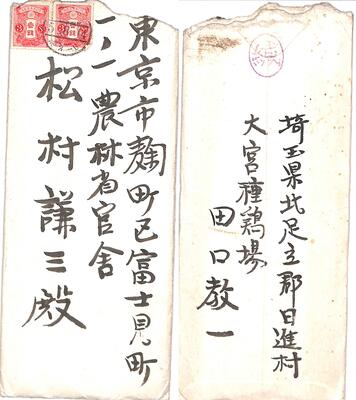 東京市麹町区富士見町
二ノ一 農林省官舎
松村謙三殿
埼玉県北足立郡日進村
大宮種鶏場
田口教一